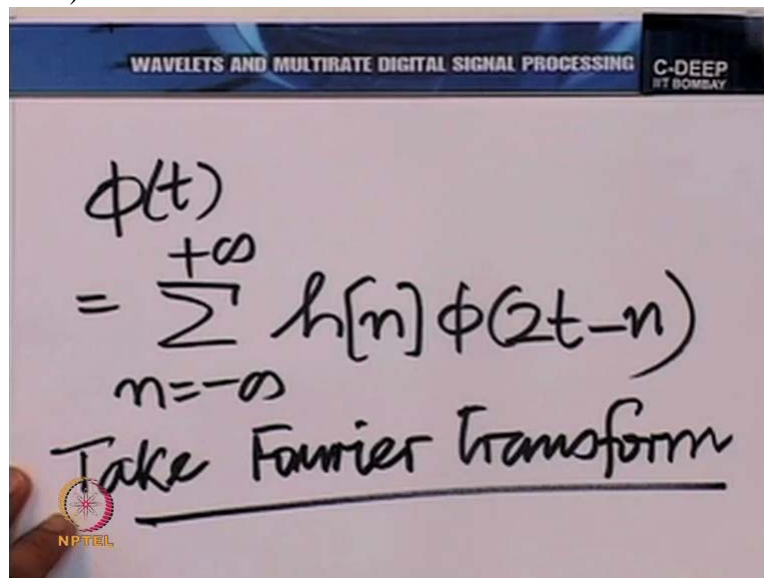 WAVELETS AND MULTIRATE DIGITAL SIGNAL PROCESSING
C-DEEP
IIT BOMBAY
ϕ(t)
+∞
= ∑ h[n] ϕ(2t-n)
n=-∞
Take Fourier transform
NPTEL